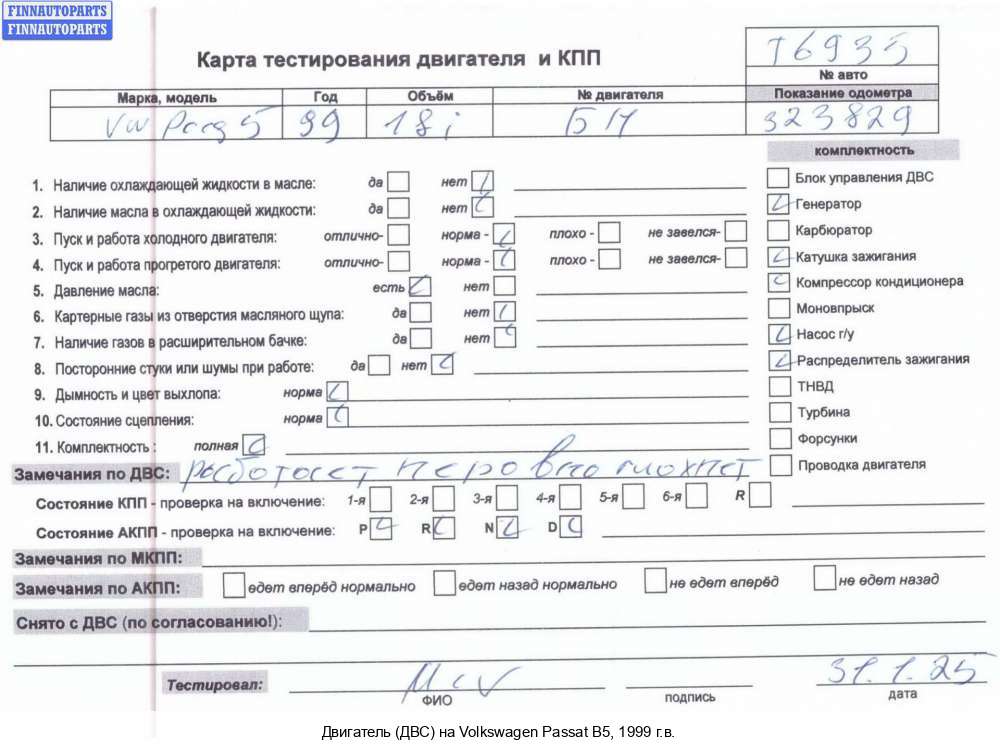 FINNAUTOPARTS
FINNAUTOPARTS
Карта тестирования двигателя и КПП
T6935
№ авто
Марка, модель Год Объём № двигателя Показание одометра
VW 5 99 18i Б/Н 323829
комплектность
1. Наличие охлаждающей жидкости в масле: да нет
Блок управления ДВС
2. Наличие масла в охлаждающей жидкости: да нет
Генератор
3. Пуск и работа холодного двигателя: отлично- норма - плохо - не завелся-
Карбюратор
4. Пуск и работа прогретого двигателя: отлично- норма - плохо - не завелся-
Катушка зажигания
5. Давление масла: есть нет
Компрессор кондиционера
6. Картерные газы из отверстия масляного щупа: да нет
Моновпрыск
7. Наличие газов в расширительном бачке: да нет
Насос г/у
8. Посторонние стуки или шумы при работе: да нет
Распределитель зажигания
9. Дымность и цвет выхлопа: норма
ТНВД
10. Состояние сцепления: норма
Турбина
11. Комплектность : полная
Форсунки
Замечания по ДВС: работает неровно глохнет
Проводка двигателя
Состояние КПП - проверка на включение: 1-я 2-я 3-я 4-я 5-я 6-я R
Состояние АКПП - проверка на включение: P R N D
Замечания по МКПП:
Замечания по АКПП: едет вперёд нормально едет назад нормально не едет вперёд не едет назад
Снято с ДВС (по согласованию!):
Тестировал: 31.1.25
ФИО подпись дата
Двигатель (ДВС) на Volkswagen Passat B5, 1999 г.в.